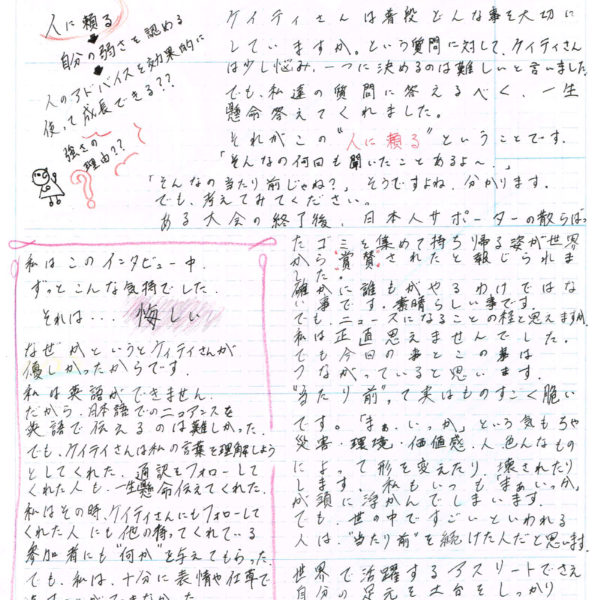 人に頼る
自分の弱さを認める
人のアドバイスを効果的に
使って成長できる??
強さの
理由??
?
ケイティさんは普段どんな事を大切に
していますか。という質問に対して、ケイティさん
は少し悩み、一つに決めるのは難しいと言いました
でも、私達の質問に答えるべく、一生
懸命答えてくれました。
それがこの"人に頼る"ということです。
「そんなの何回も聞いたことあるよ〜。」
「そんなの当たり前じゃね?」そうですよね、分かります。
でも、考えてみてください。
ある大会の終了後、日本人サポーターの散らばっ
たゴミを集めて持ち帰る姿が世界
から賞賛されたと報じられま
した。
確かに誰もがやるわけではな
い事です。素晴らしい事です。
でも、ニュースになることの程と思えますが、
私は正直思えませんでした。
でも今回の事とこの事は
つながっていると思います。
"当たり前"って実はものすごく脆い
です。「まぁ、いっか」という気もちや
災害・環境・価値感・人、色んなもの
によって形を変えたり、壊されたり
します。私もいつも「まぁいっか」
が頭に浮かんでしまいます。
でも、世の中ですごいといわれる
人は、"当たり前"を続けた人だと思います。
世界で活躍するアスリートでさえ
自分の足元を土台をしっかり
私はこのインタビュー中、
ずっとこんな気持でした。
それは・・・悔しい
なぜかというとケイティさんが
優しかったからです。
私は英語ができません。
だから、日本語でのニュアンスを
英語で伝えるのは難しかった。
でも、ケイティさんは私の言葉を理解しよう
としてくれた。通訳をフォローして
くれた人も、一生懸命伝えてくれた。
私はその時、ケイティさんにもフォローして
くれた人にも他の待ってくれている
参加者にも"何か"を与えてもらった。
でも、私は、十分に表情や仕草で